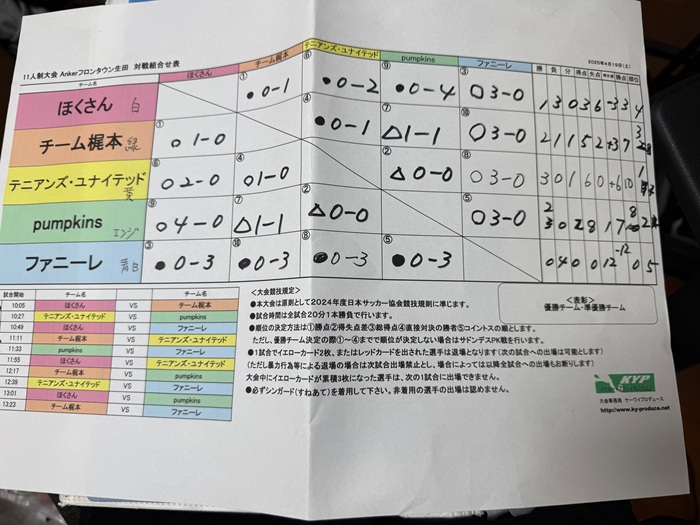 11人制大会 Ankerフロンタウン生田 対戦組合せ表
2025年4月19日(土)
チーム名 ほくさん チーム梶本 テニアンズ・ユナイテッド pumpkins ファニーレ 勝 負 分 得点 失点 得失差 勝点 順位
ほくさん 白 ① ●0-1 ⑥ ●0-2 ⑨ ●0-4 ③ ○3-0 1 3 0 3 6 -3 3 4
チーム梶本 緑 ① ○1-0 ④ ●0-1 ⑦ △1-1 ⑩ ○3-0 2 1 1 5 2 +3 7 3
テニアンズ・ユナイテッド 黄 ⑥ ○2-0 ④ ○1-0 ② △0-0 ⑧ ○3-0 3 0 1 6 0 +6 10 1
pumpkins エンジ ⑨ ○4-0 ⑦ △1-1 ② △0-0 ⑤ ○3-0 2 0 2 8 1 7 8 2
ファニーレ 青白 ③ ●0-3 ⑩ ●0-3 ⑧ ●0-3 ⑤ ●0-3 0 4 0 0 12 -12 0 5
試合開始 チーム名 チーム名
10:05 ほくさん VS チーム梶本
10:27 テニアンズ・ユナイテッド VS pumpkins
10:49 ほくさん VS ファニーレ
11:11 チーム梶本 VS テニアンズ・ユナイテッド
11:33 pumpkins VS ファニーレ
11:55 ほくさん VS テニアンズ・ユナイテッド
12:17 チーム梶本 VS pumpkins
12:39 テニアンズ・ユナイテッド VS ファニーレ
13:01 ほくさん VS pumpkins
13:23 チーム梶本 VS ファニーレ
<大会競技規定>
●本大会は原則として2024年度日本サッカー協会競技規則に準じます。
●試合時間は全試合20分1本勝負で行います。
●順位の決定方法は①勝点②得失点差③総得点④直接対決の勝者⑤コイントスの順とします。
ただし、優勝チーム決定の際①~④までで順位が決定しない場合はサドンデスPK戦を行います。
●1試合でイエローカード2枚、またはレッドカードを出された選手は退場となります(次の試合への出場は可能とします)
(ただし暴力行為等による退場の場合は次試合出場禁止とし、場合によっては以降全試合への出場もお断りします)
大会中にイエローカードが累積3枚になった選手は、次の1試合に出場できません。
●必ずシンガード(すねあて)を着用して下さい。非着用の選手の出場は認めません。
<表彰>
優勝チーム・準優勝チーム
KYP
大会事務局 ケーワイプロデュース
http://www.ky-produce.net